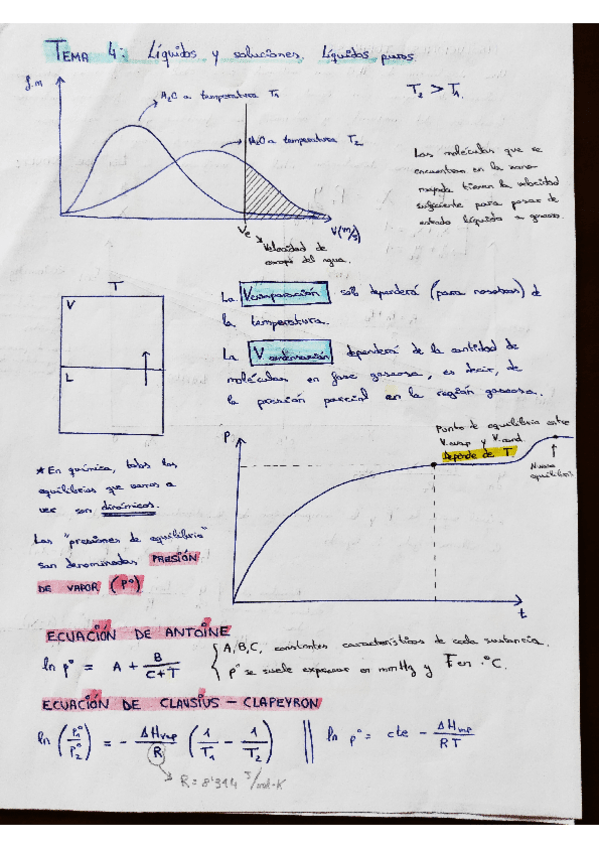 TEMA 4: Líquidos y soluciones. Líquidos puros.
f.m
H2O a temperatura T1
T2 > T1.
H2O a temperatura T2
Las moléculas que se
encuentran en la zona
rayada tienen la velocidad
suficiente para pasar de
estado líquido a gaseoso.
Ve
V(m/s)
Velocidad de
escape del agua.
T
V
L
La Vevaporación sólo dependerá (para nosotros) de
la temperatura.
La Vcondensación dependerá de la cantidad de
moléculas en fase gaseosa, es decir, de
la presión parcial en la región gaseosa.
P
Punto de equilibrio entre
V.evap y V.cond
Depende de T
Nuevo
equilibrio
t
* En química, todos los
equilibrios que vamos a
ver son dinámicos.
Las "presiones de equilibrio"
son denominadas PRESIÓN
DE VAPOR (pº)
ECUACIÓN DE ANTOINE
ln pº = A + B/(C+T)
A, B, C, constantes características de cada sustancia.
pº se suele expresar en mmHg y T en ºC.
ECUACIÓN DE CLAUSIUS – CLAPEYRON
ln (p1º/p2º) = - ΔHvap/R (1/T1 - 1/T2) || ln pº = cte - ΔHvap/RT
R = 8'314 J/mol·K